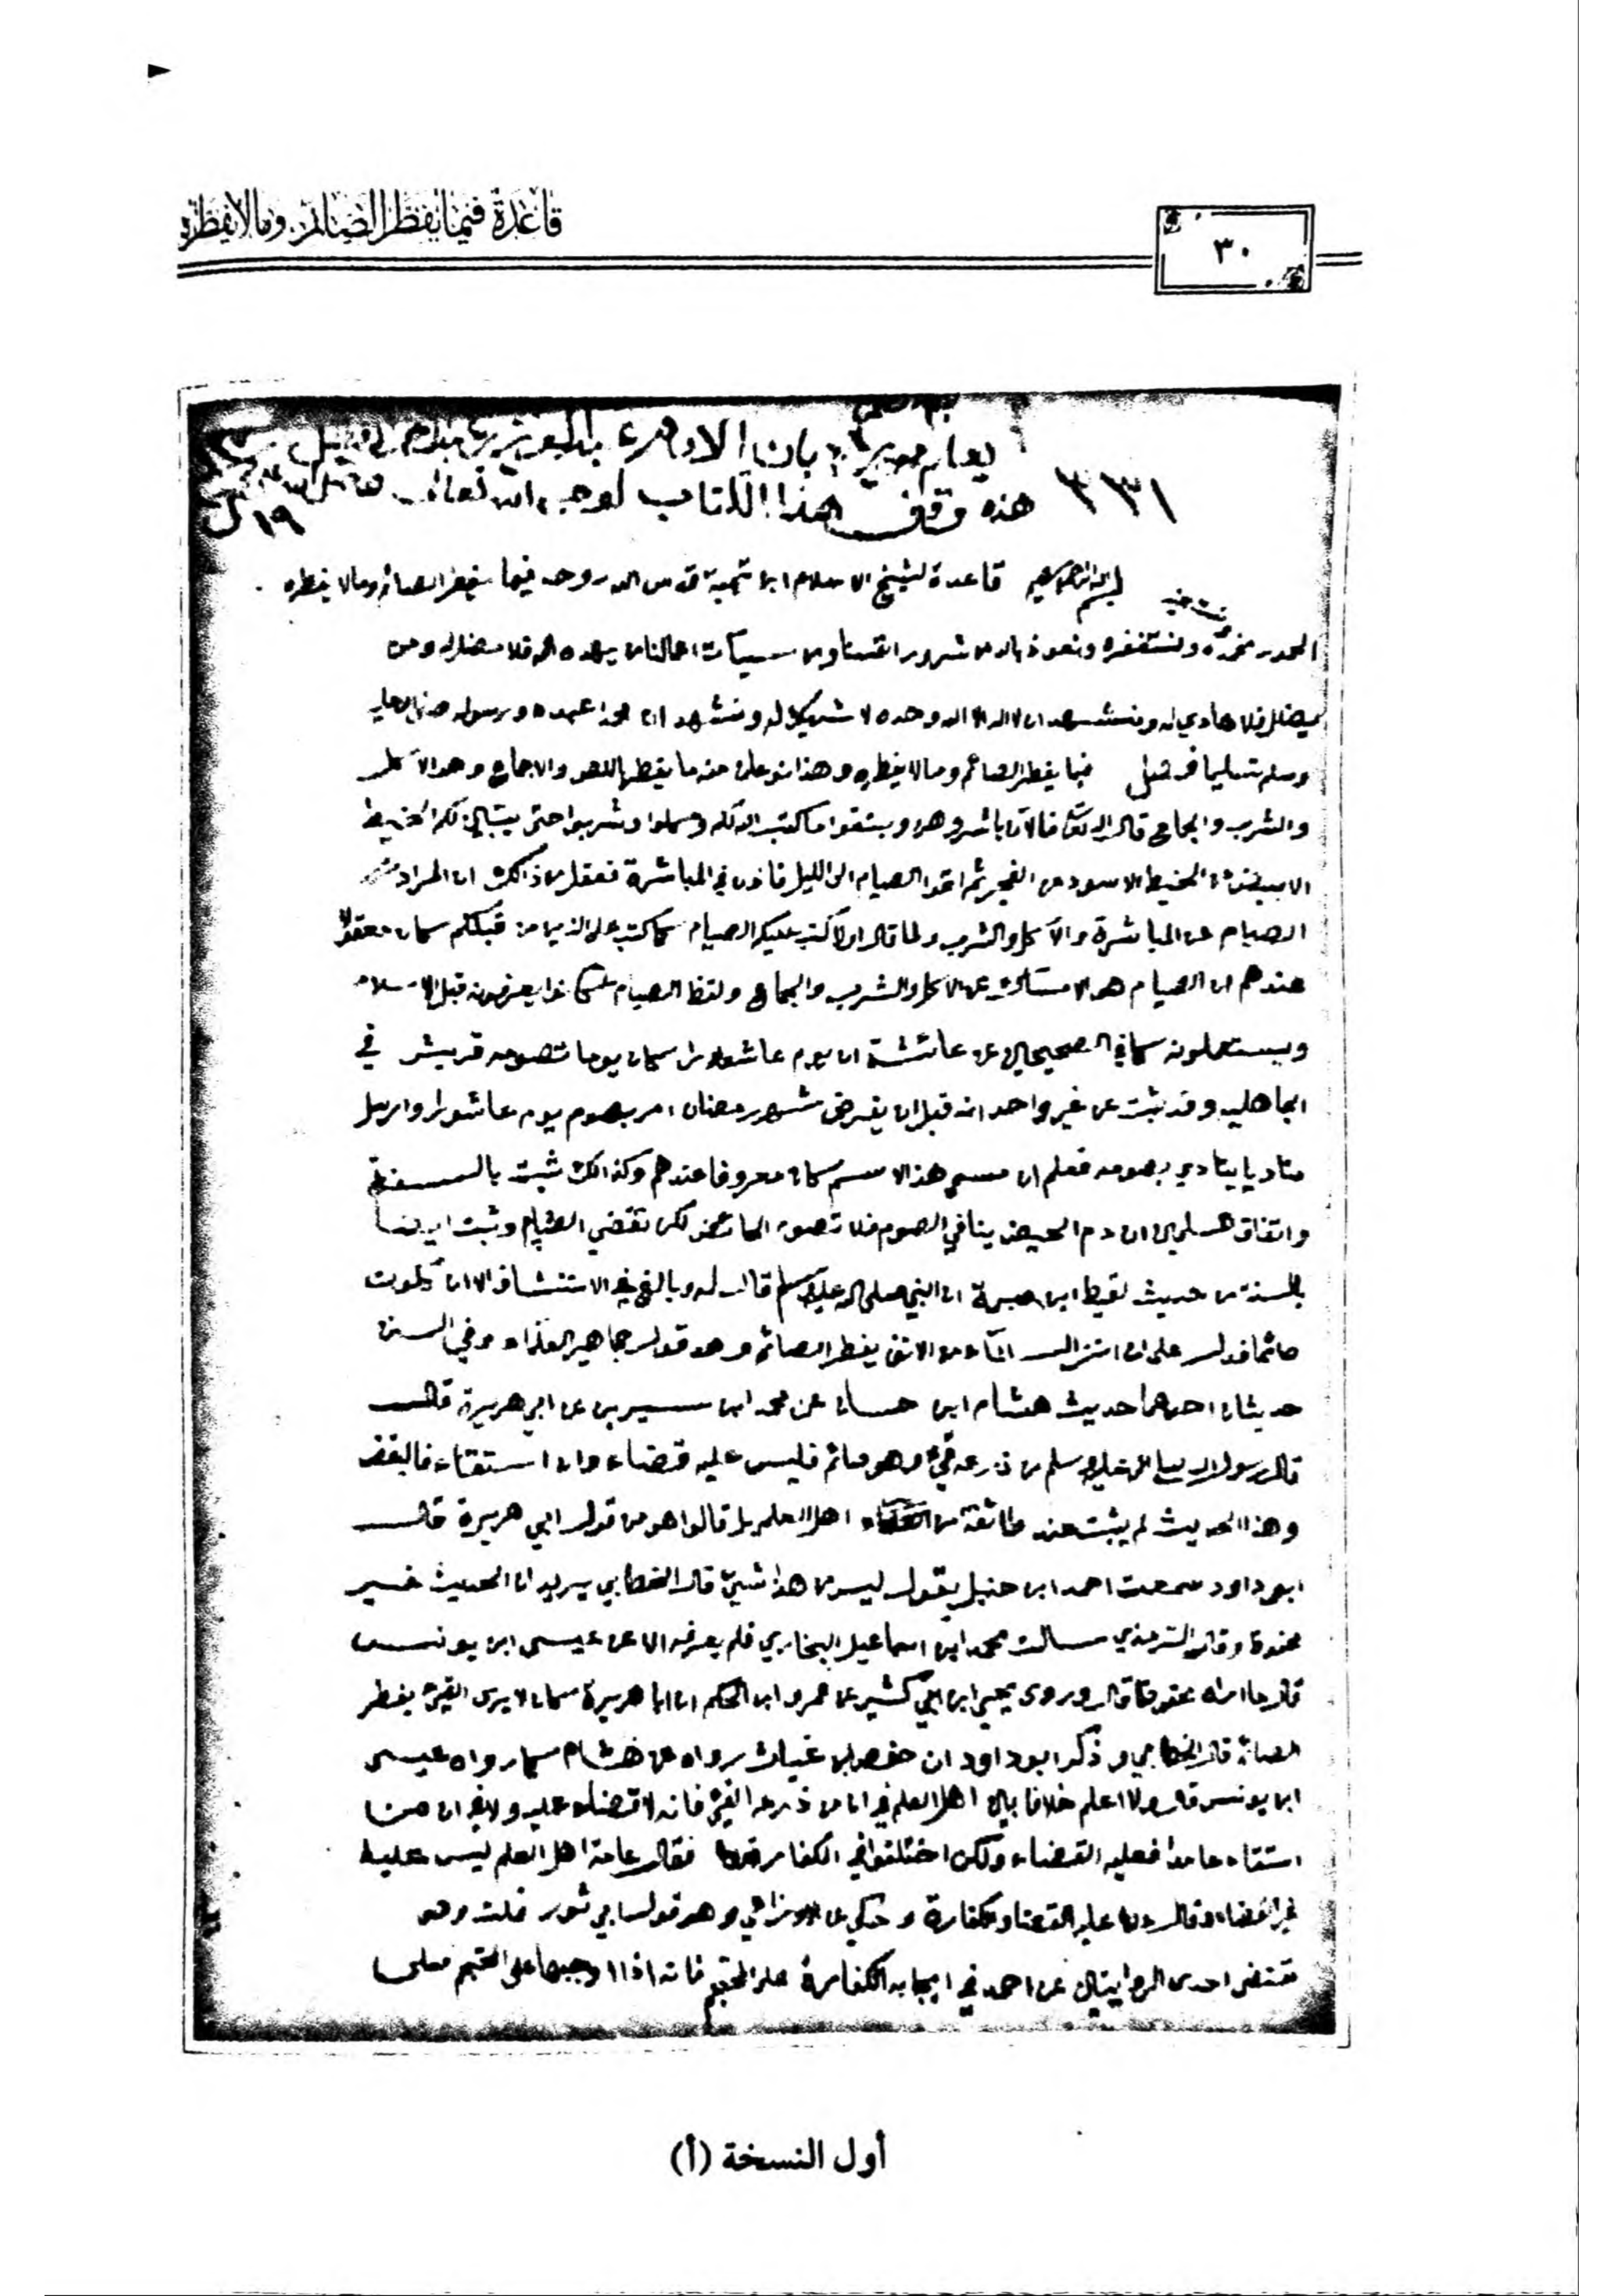 قاعدة فيما يفطر الصائم وما لا يفطره
٣٠
٣٣١
هذه وقف هذا الكتاب لوجه الله تعالى
١٩
بسم الله الرحمن الرحيم قاعدة لشيخ الاسلام ابن تيمية قدس الله روحه فيما يفطر الصائم وما لا يفطره
الحمد لله نحمده ونستغفره ونعوذ بالله من شرور انفسنا ومن سيئات اعمالنا من يهده الله فلا مضل له ومن
يضلل فلا هادي له ونشهد ان لا اله الا الله وحده لا شريك له ونشهد ان محمدا عبده ورسوله صلى الله عليه
وسلم تسليما فصل فيما يفطر الصائم وما لا يفطره وهذا نوعان منه ما يفطر بالنص والاجماع وهو الاكل
والشرب والجماع قال الله تعالى فالآن باشروهن وابتغوا ما كتب الله لكم وكلوا واشربوا حتى يتبين لكم الخيط
الابيض من الخيط الاسود من الفجر ثم اتموا الصيام الى الليل فاذن في المباشرة فعقل من ذالك ان المراد
الصيام عن المباشرة والاكل والشرب ولما قال اولا كتب عليكم الصيام كما كتب على الذين من قبلكم كان معقولا
عندهم ان الصيام هو الامساك عن الاكل والشرب والجماع ولفظ الصيام كانوا يعرفونه قبل الاسلام
ويستعملونه كما في الصحيحين عن عائشة ان يوم عاشوراء كان يوما تصومه قريش في
الجاهلية وقد ثبت عن غير واحد انه قبل ان يفرض شهر رمضان امر بصوم يوم عاشوراء وارسل
مناديا ينادي بصومه فعلم ان مسمى هذا الاسم كان معروفا عندهم وكذالك ثبت بالسنة
واتفاق المسلمين ان دم الحيض ينافي الصوم فلا تصوم الحائض لكن تقضي الصيام وثبت ايضا
بالسنة من حديث لقيط ابن صبرة ان النبي صلى الله عليه وسلم قال له وبالغ في الاستنشاق الا ان تكون
صائما فدل على ان انزال الماء من الانف يفطر الصائم وهو قول جماهير العلماء وفي السنن
حديثان احدهما حديث هشام ابن حسان عن محمد ابن سيرين عن ابي هريرة قال
قال رسول الله صلى الله عليه وسلم من ذرعه قيء وهو صائم فليس عليه قضاء وان استقاء فاليقض
وهذا الحديث لم يثبت عند طائفة من اهل العلم بل قالوا هو من قول ابي هريرة قال
ابو داود سمعت احمد ابن حنبل يقول ليس من هذا شيء قال الخطابي يريد ان الحديث غير
محفوظ وقال الترمذي سالت محمد ابن اسماعيل البخاري فلم يعرفه الا عن عيسى ابن يونس
قال ما اراه محفوظا قال وروى يحيى ابن ابي كثير عن عمرو ابن الحكم ان ابا هريرة كان لا يرى القيء يفطر
الصائم قال الخطابي وذكر ابو داود ان حفص ابن غياث رواه عن هشام كما رواه عيسى
ابن يونس قال ولا اعلم خلافا بين اهل العلم في ان من ذرعه القيء فانه لا قضاء عليه ولا في ان من
استقاء عامدا فعليه القضاء ولكن اختلفوا في الكفارة فقال عامة اهل العلم ليس عليه
غير القضاء وقال عطاء عليه القضاء والكفارة وحكي عن الاوزاعي وهو قول ابي ثور قلت وهو
مقتضى احدى الروايتين عن احمد في ايجابه الكفارة على المحتجم فانه اذا اوجبها على المحتجم فعلى
أول النسخة (أ)